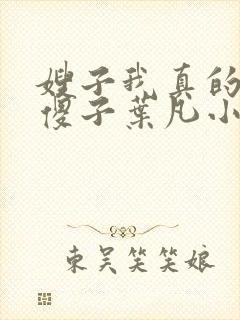 嫂子我真的
傻子葉凡小
東吴笑笑娘